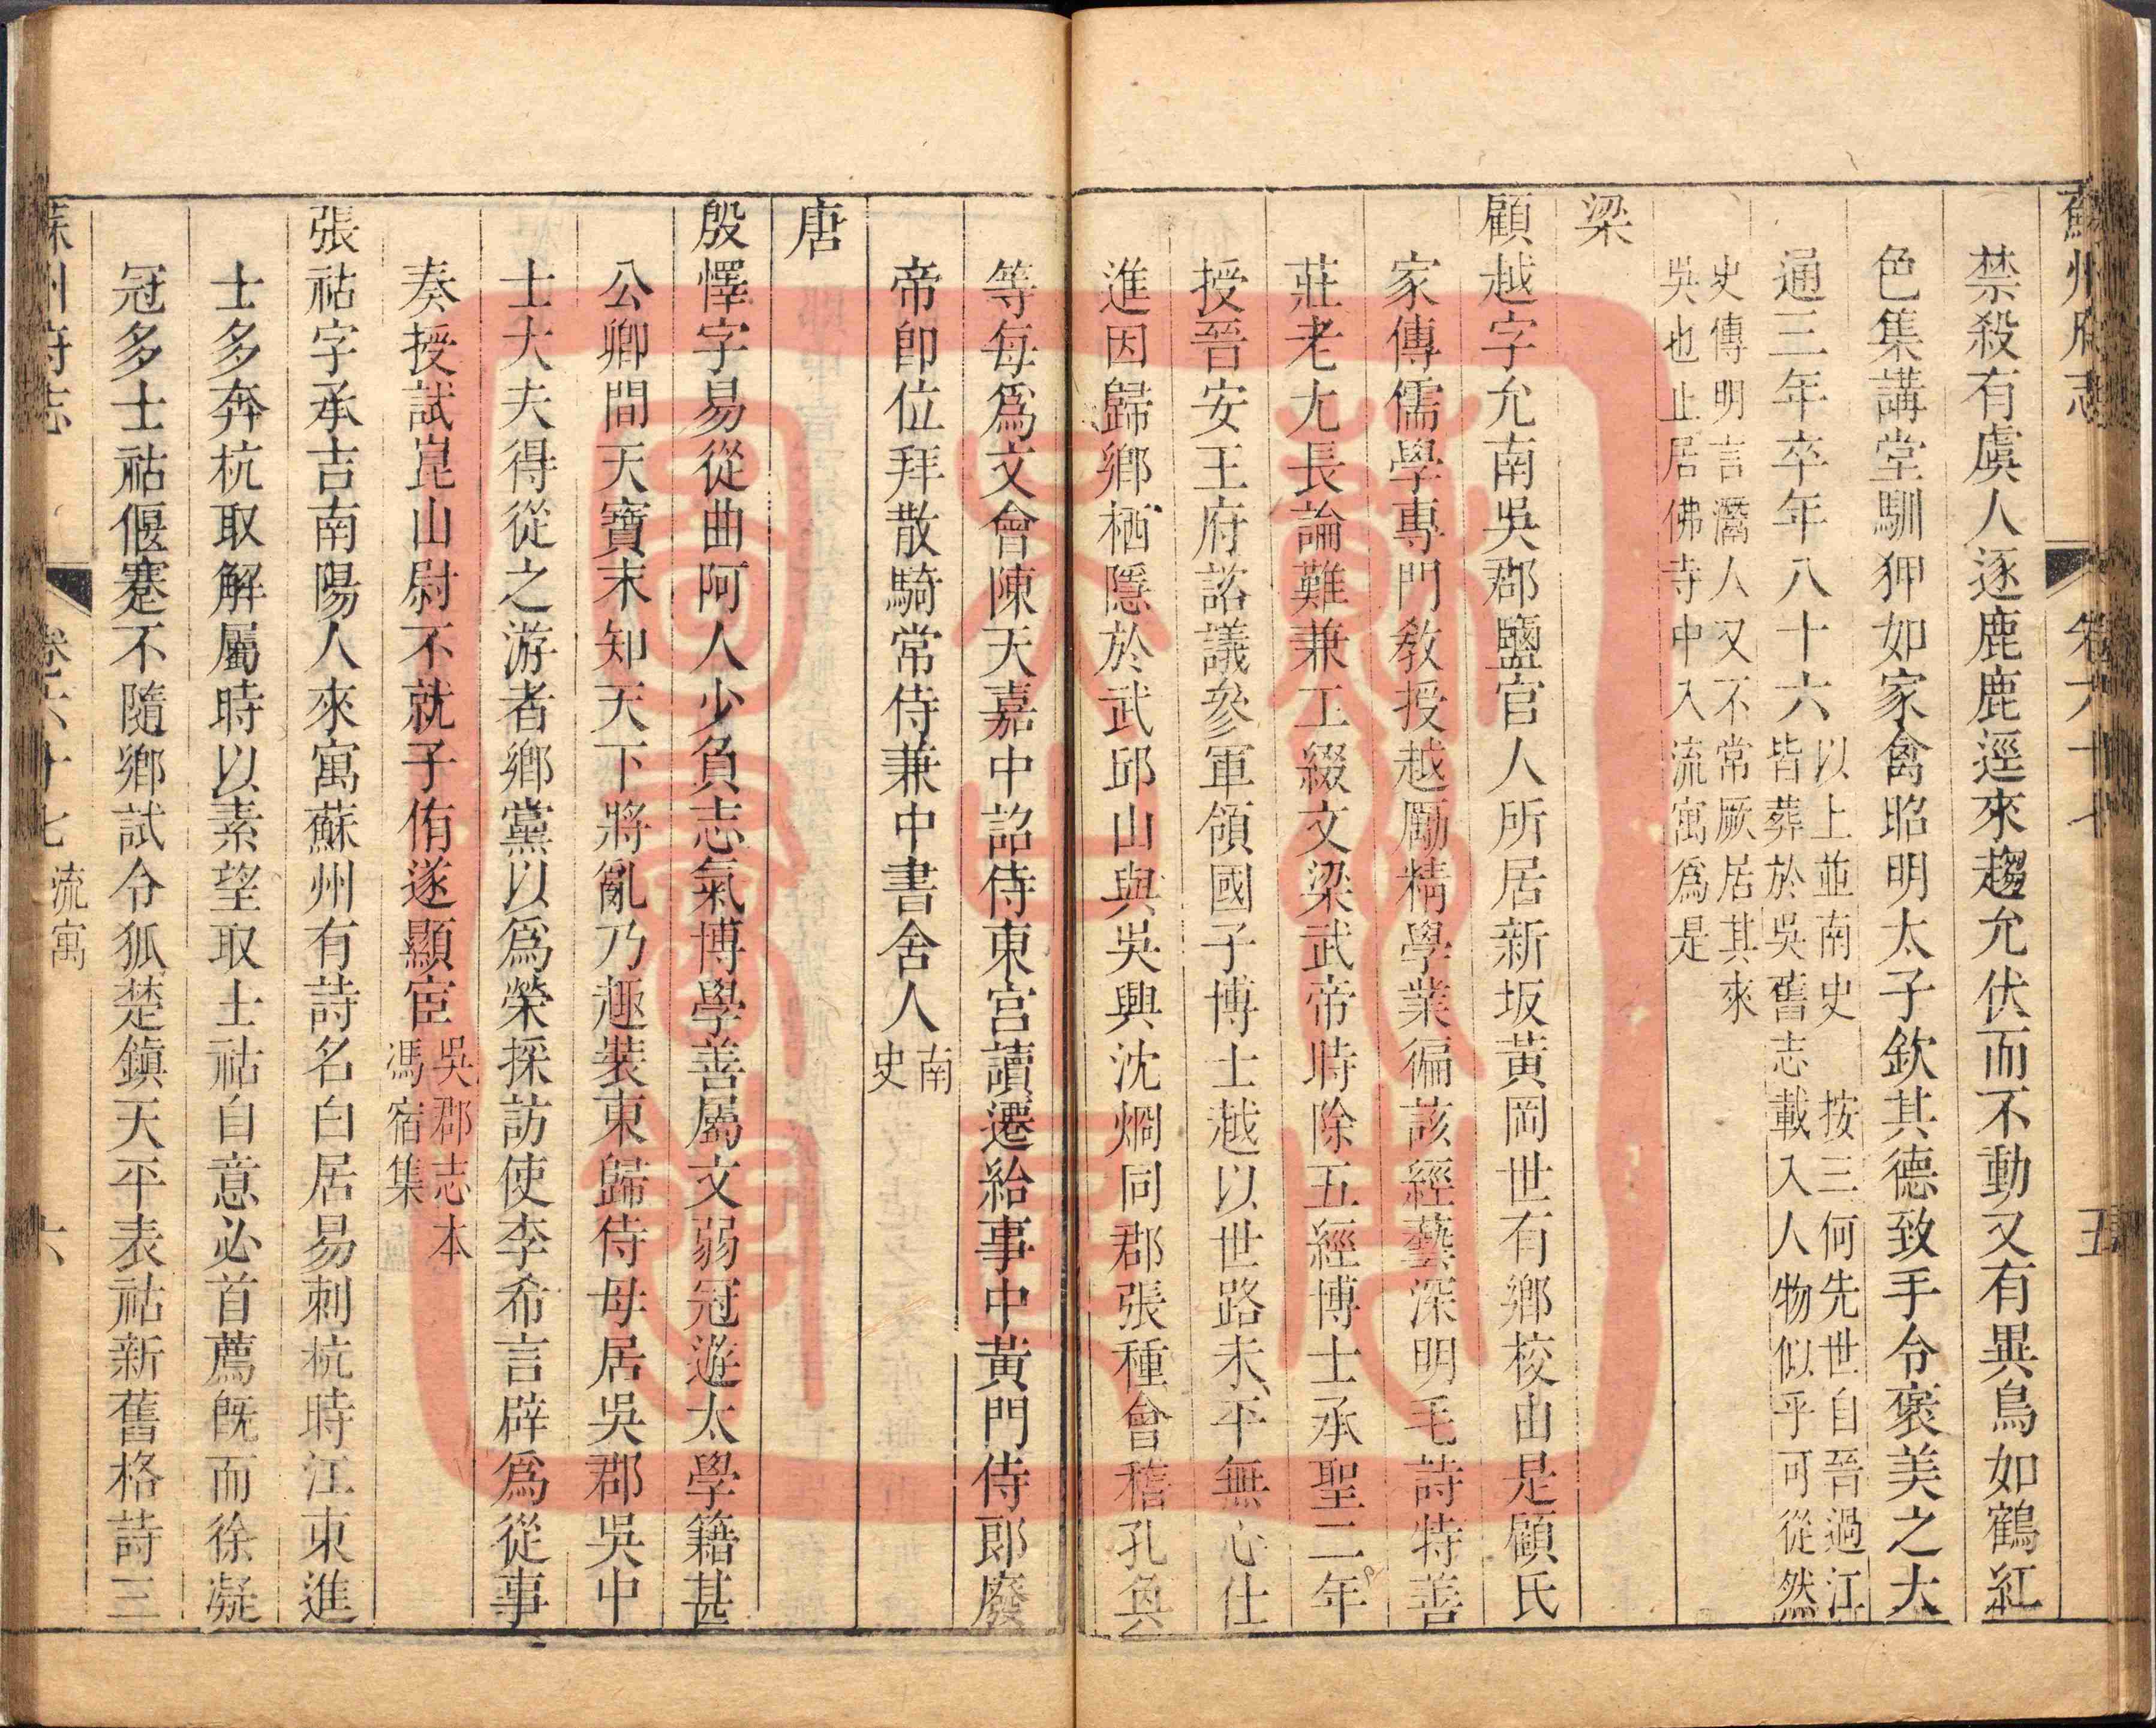 蘇州府志 卷六十七 五
禁殺有虞人逐鹿鹿逕來趨允伏而不動又有異鳥如鶴紅
色集講堂馴狎如家禽昭明太子欽其德致手令褒美之大
通三年卒年八十六以上並南史 按三何先世自晉過江
皆葬於吳舊志載入人物似乎可從然
史傳明言灊人又不常厥居其來
吳也止居佛寺中入流寓爲是
梁
顧越字允南吳郡鹽官人所居新坂黃岡世有鄉校由是顧氏
家傳儒學專門教授越勵精學業徧該經藝深明毛詩特善
莊老尢長論難兼工綴文梁武帝時除五經博士承聖二年
授晉安王府諮議參軍領國子博士越以世路未平無心仕
進因歸鄉栖隱於武邱山與吳興沈烱同郡張種會稽孔奐
等每爲文會陳天嘉中詔侍東宮讀遷給事中黃門侍郞廢
帝卽位拜散騎常侍兼中書舍人南
史
唐
殷懌字易從曲阿人少負志氣博學善屬文弱冠遊太學籍甚
公卿間天寶末知天下將亂乃趣裝東歸侍母居吳郡吳中
士大夫得從之游者鄉黨以爲榮採訪使李希言辟爲從事
奏授試崑山尉不就子侑遂顯宦吳郡志本
馮宿集
張祜字承吉南陽人來寓蘇州有詩名白居易刺杭時江東進
士多奔杭取解屬時以素望取士祜自意必首薦旣而徐凝
冠多士祜偃蹇不隨鄉試令狐楚鎭天平表祜新舊格詩三
蘇州府志 卷六十七 流寓 六